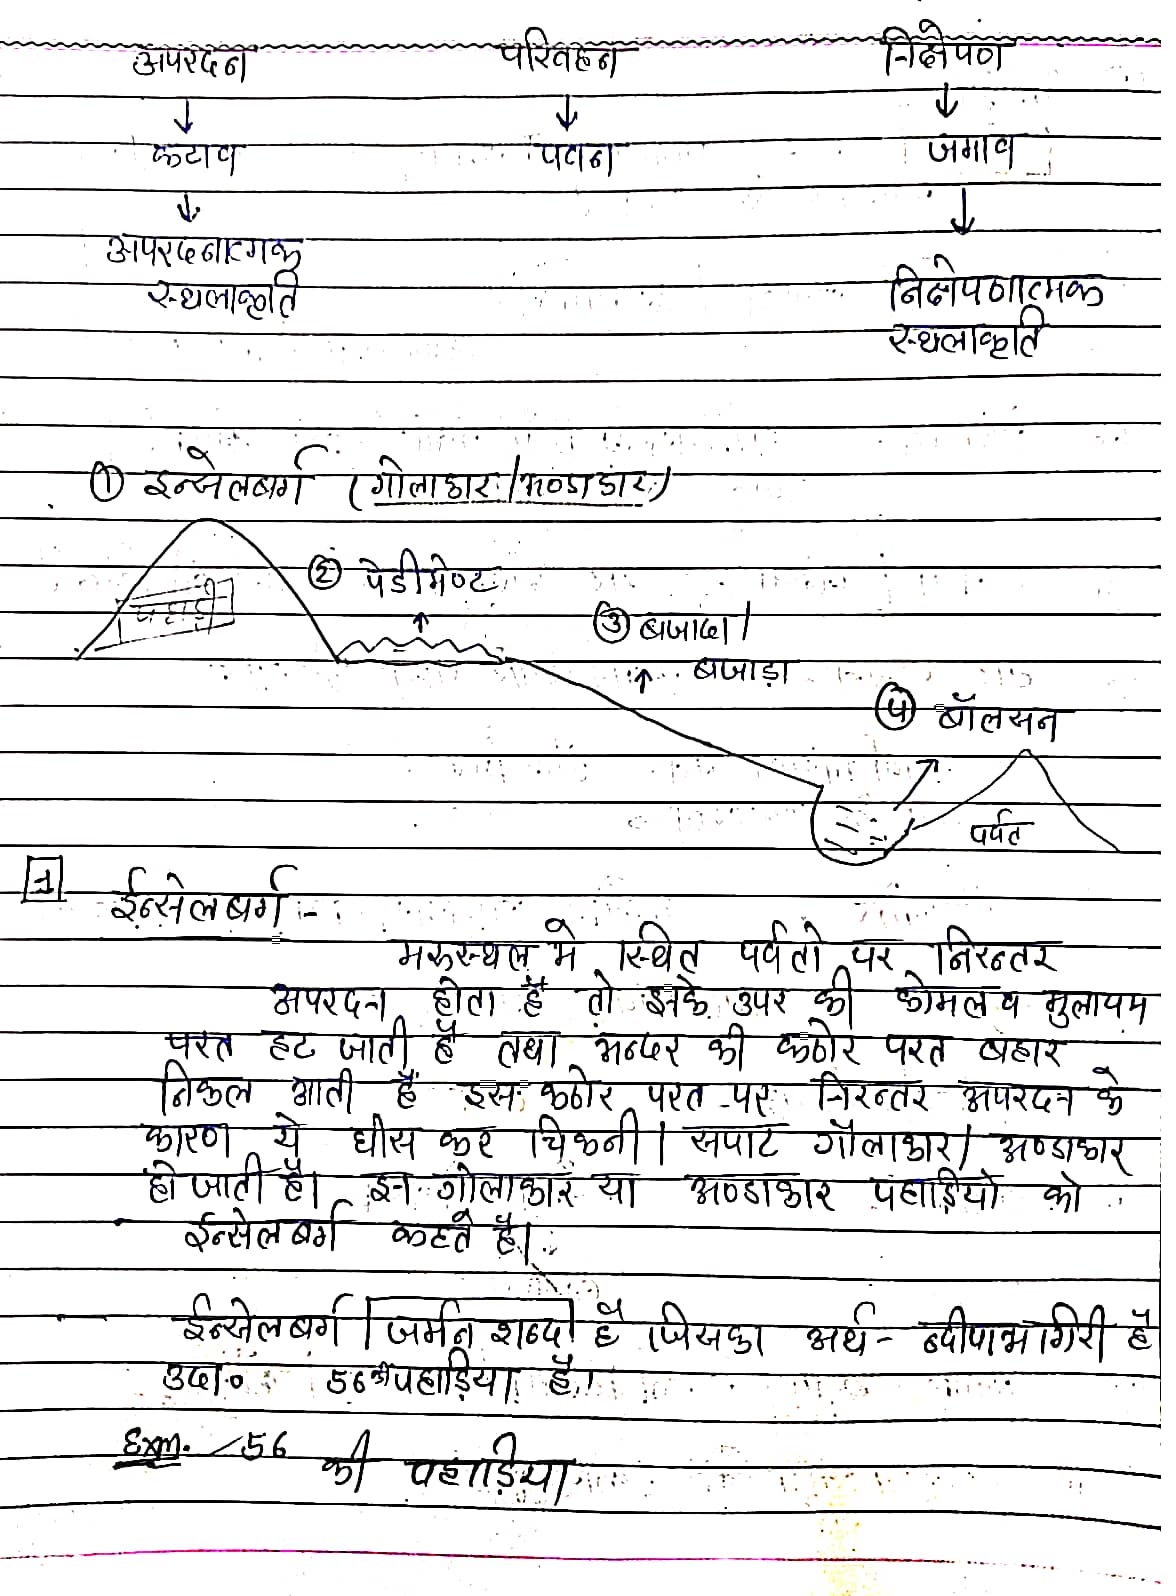 अपरदन परिवहन निक्षेपण
↓ ↓ ↓
कटाव पवन जमाव
↓ ↓
अपरदनात्मक
स्थलाकृति
निक्षेपणात्मक
स्थलाकृति
① इन्सेलबर्ग (गोलाकार/अण्डाकार)
② पेडीमेण्ट
पहाड़ी
③ बजादा/
बजाड़ा
④ बॉलसन
पर्वत
1 ईन्सेलबर्ग :-
मरुस्थल मे स्थित पर्वतो पर निरन्तर
अपरदन होता है तो इनके उपर की कोमल व मुलायम
परत हट जाती है तथा अन्दर की कठोर परत बहार
निकल आती है इस कठोर परत पर निरन्तर अपरदन के
कारण ये घीस कर चिकनी / सपाट गोलाकार / अण्डाकार
हो जाती है। इन गोलाकार या अण्डाकार पहाड़ियो को
ईन्सेलबर्ग कहते है।
ईन्सेलबर्ग जर्मन शब्द है जिसका अर्थ - द्वीपाभगिरी है
उदा० 56 की पहाड़िया है।
Exm. 56 की पहाड़िया